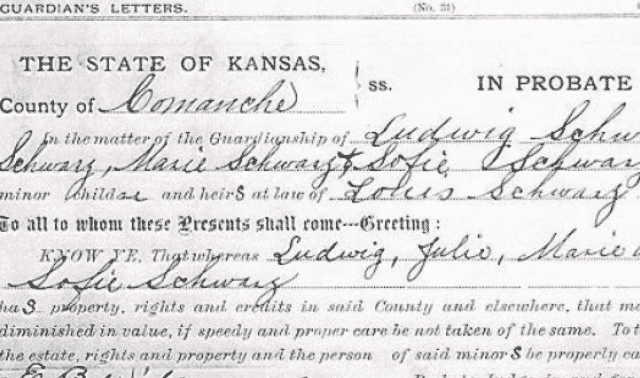 GUARDIAN'S LETTERS. (No. 31)
THE STATE OF KANSAS,
County of Comanche ss. IN PROBATE
In the matter of the Guardianship of Ludwig Schw
Schwarz, Marie Schwarz & Sofie Schwarz
minor children and heirs at law of Louis Schwarz
To all to whom these Presents shall come---Greeting:
KNOW YE, That whereas Ludwig, Julie, Marie
Sofie Schwarz
has property, rights and credits in said County and elsewhere, that ma
diminished in value, if speedy and proper care be not taken of the same. To t
the estate, rights and property and the person of said minors be properly ca